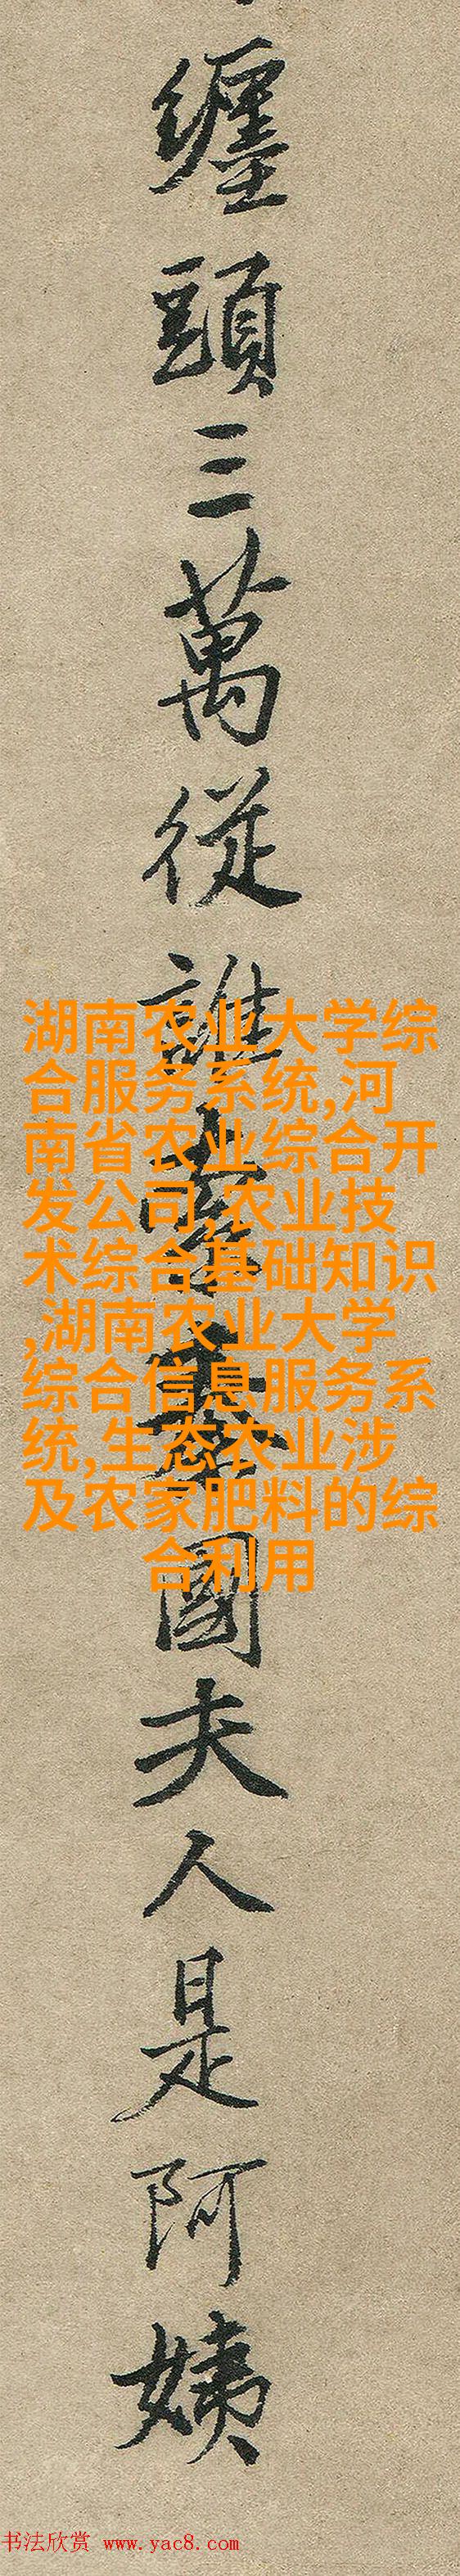 纏頭三萬從誰索秦國夫人是阿姨
湖南农业大学综
合服务系统,河
南省农业综合开
发公司,农业技
术综合基础知识
,湖南农业大学
综合信息服务系
统,生态农业涉
及农家肥料的综
合利用
书法欣赏 www.yac8.com